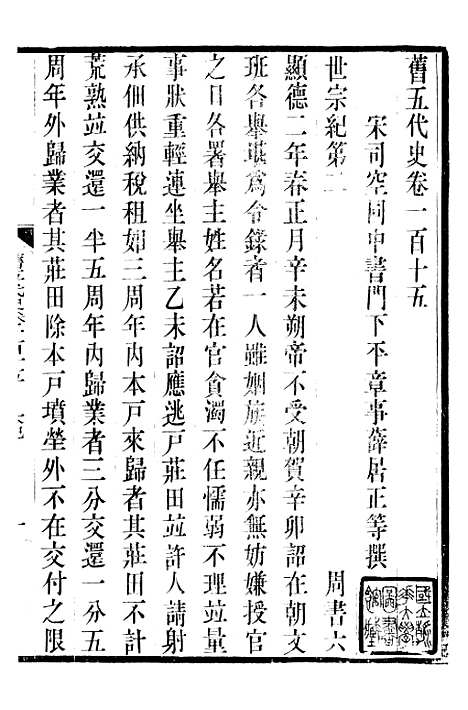 舊五代史卷一百十五
宋司空同中書門下平章事薛居正等撰
世宗紀第二　周書六
顯德二年春正月辛未朔帝不受朝賀辛卯詔在朝文
班各舉堪為令錄者一人雖姻族近親亦無妨嫌授官
之日各署舉主姓名若在官貪濁不任懦弱不理竝量
事狀重輕連坐舉主乙未詔應逃戸莊田竝許人請射
承佃供納稅租如三周年內本戸來歸者其莊田不計
荒熟竝交還一半五周年內歸業者三分交還一分五
周年外歸業者其莊田除本戸墳塋外不在交付之限